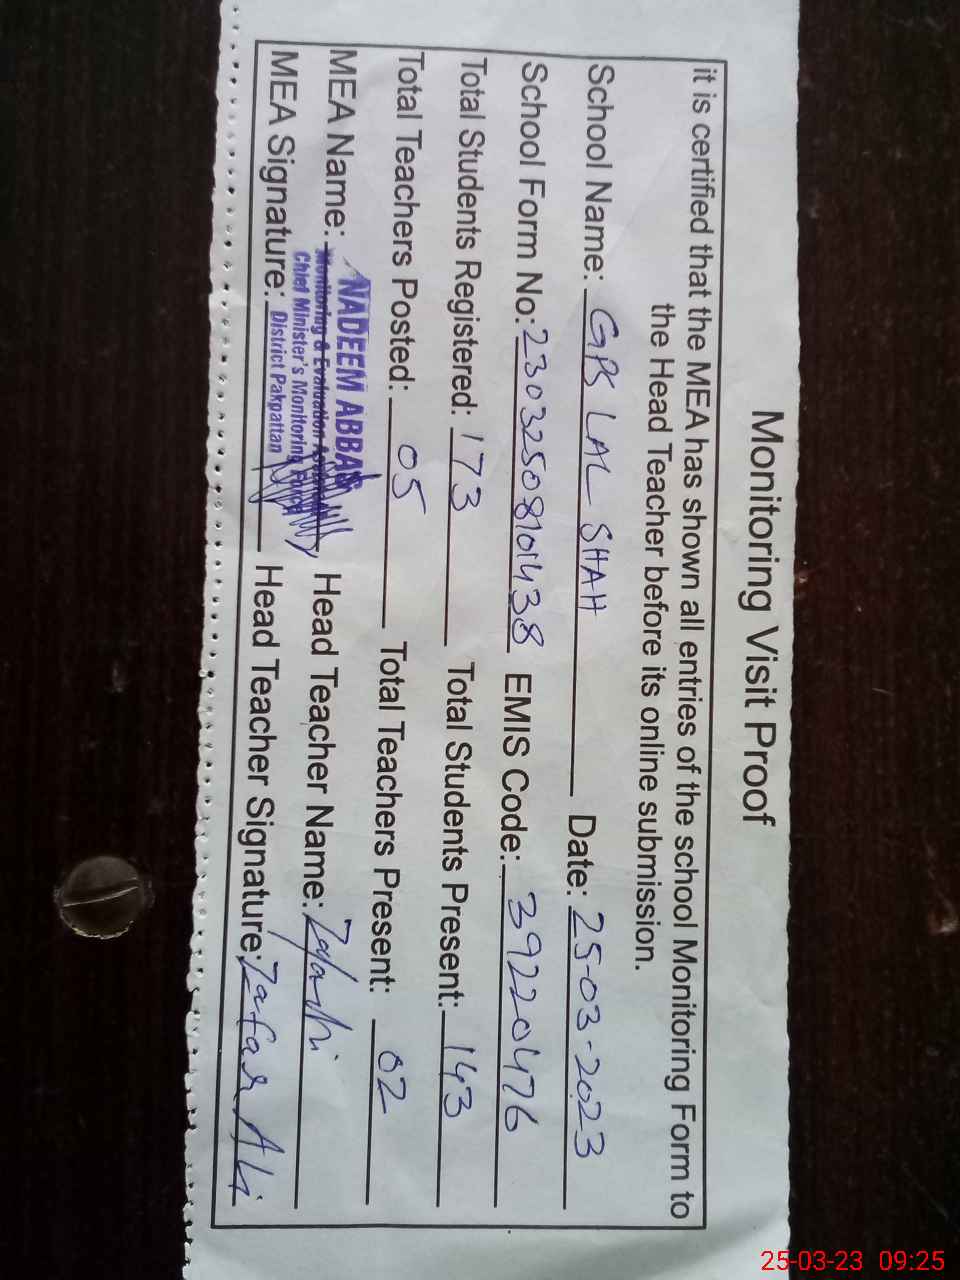 Monitoring Visit Proof
it is certified that the MEA has shown all entries of the school Monitoring Form to
the Head Teacher before its online submission.
School Name: GPS LAL SHAH Date: 25-03-2023
School Form No: 23032508101438 EMIS Code: 39220476
Total Students Registered: 173 Total Students Present: 143
Total Teachers Posted: 05 Total Teachers Present: 02
MEA Name: NADEEM ABBAS Head Teacher Name:
Monitoring & Evaluation
Chief Minister's Monitoring Force
District Pakpattan
MEA Signature: Head Teacher Signature: Zafar Ali
25-03-23 09:25